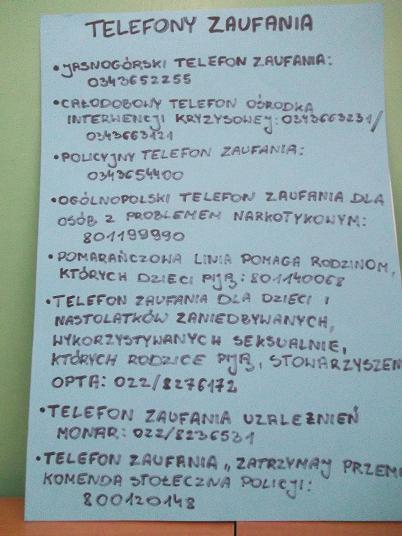 TELEFONY ZAUFANIA
• JASNOGÓRSKI TELEFON ZAUFANIA:
0343652255
• CAŁODOBOWY TELEFON OŚRODKA
INTERWENCJI KRYZYSOWEJ: 0343663231/
0343663121
• POLICYJNY TELEFON ZAUFANIA:
0343654400
• OGÓLNOPOLSKI TELEFON ZAUFANIA DLA
OSÓB Z PROBLEMEM NARKOTYKOWYM:
801199990
• POMARAŃCZOWA LINIA POMAGA RODZINOM,
KTÓRYCH DZIECI PIJĄ: 801140068
• TELEFON ZAUFANIA DLA DZIECI I
NASTOLATKÓW ZANIEDBYWANYCH,
WYKORZYSTYWANYCH SEKSUALNIE,
KTÓRYCH RODZICE PIJĄ, STOWARZYSZEN
OPTA: 022/8276172
• TELEFON ZAUFANIA UZALEŻNIEŃ
MONAR: 022/8236531
• TELEFON ZAUFANIA „ZATRZYMAJ PRZEM
KOMENDA STOŁECZNA POLICJI:
800120148